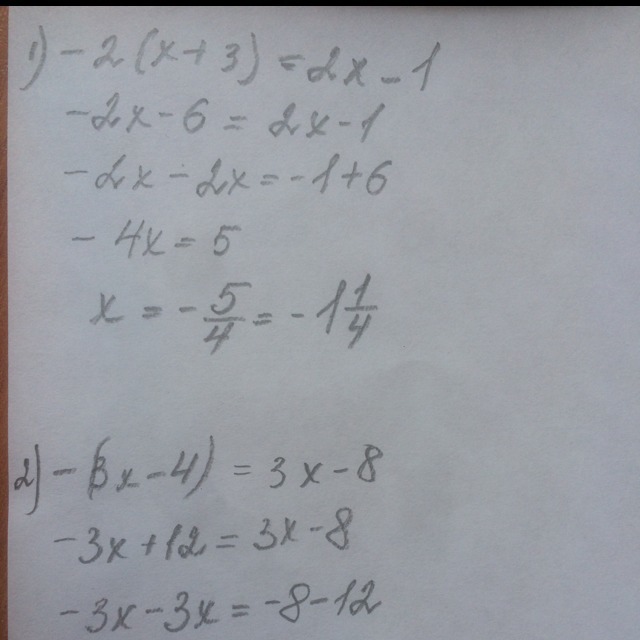 1) -2(x+3) = 2x-1
-2x-6 = 2x-1
-2x-2x = -1+6
-4x = 5
x = -5/4 = -1 1/4
2) -(3x-4) = 3x-8
-3x+12 = 3x-8
-3x-3x = -8-12